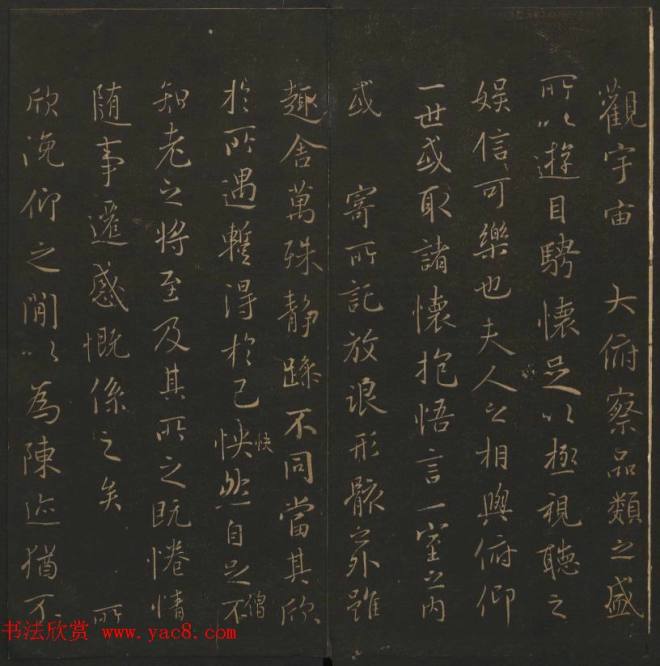 觀宇宙 大俯察品類之盛
所以遊目騁懷足以極視聽之
娛信可樂也夫人之相與俯仰
一世或取諸懷抱悟言一室之內
或 寄所託放浪形骸之外雖
趣舍萬殊靜躁不同當其欣
於所遇蹔得於己怏然自足不
快
僧
知老之將至及其所之既惓情
隨事遷感慨係之矣 所
欣俛仰之閒以為陳迹猶不
书法欣赏 www.yac8.com